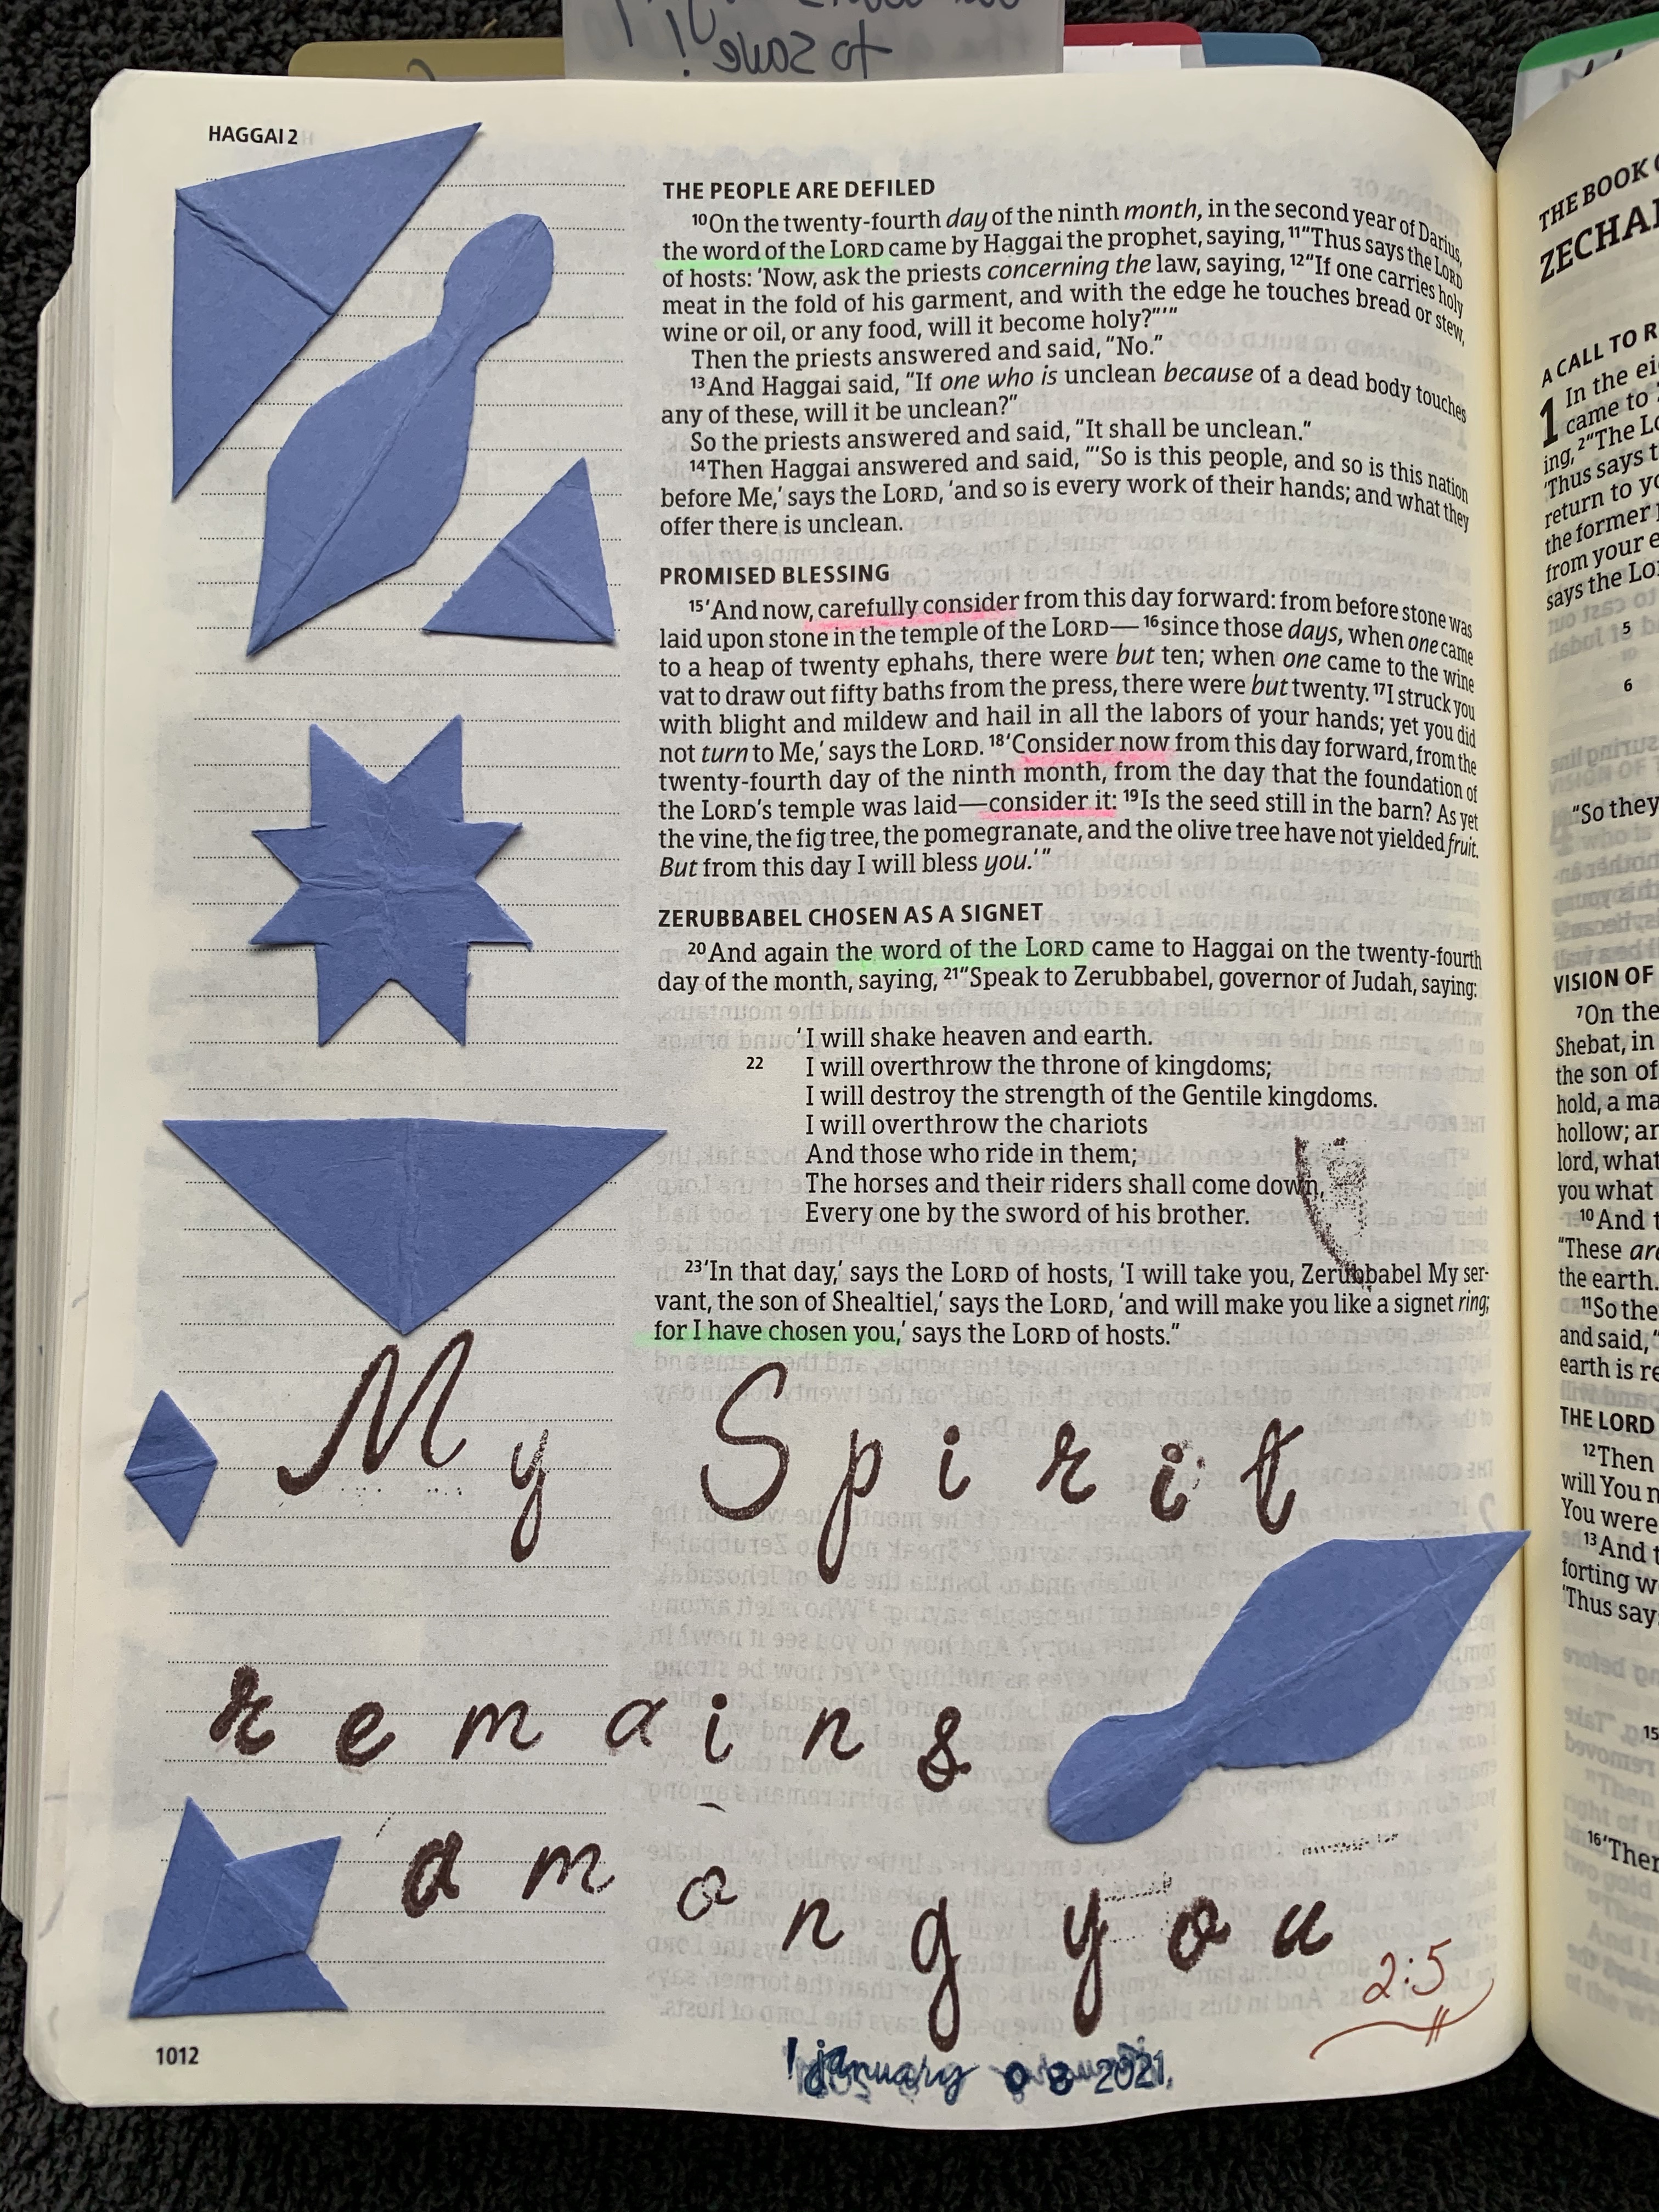 to save!
HAGGAI 2
THE PEOPLE ARE DEFILED
10On the twenty-fourth day of the ninth month, in the second year of Darius,
the word of the LORD came by Haggai the prophet, saying, 11"Thus says the LORD
of hosts: 'Now, ask the priests concerning the law, saying, 12"If one carries holy
meat in the fold of his garment, and with the edge he touches bread or stew,
wine or oil, or any food, will it become holy?"'"
Then the priests answered and said, "No."
13And Haggai said, "If one who is unclean because of a dead body touches
any of these, will it be unclean?"
So the priests answered and said, "It shall be unclean."
14Then Haggai answered and said, "'So is this people, and so is this nation
before Me,' says the LORD, 'and so is every work of their hands; and what they
offer there is unclean.
PROMISED BLESSING
15'And now, carefully consider from this day forward: from before stone was
laid upon stone in the temple of the LORD— 16since those days, when one came
to a heap of twenty ephahs, there were but ten; when one came to the wine
vat to draw out fifty baths from the press, there were but twenty. 17I struck you
with blight and mildew and hail in all the labors of your hands; yet you did
not turn to Me,' says the LORD. 18'Consider now from this day forward, from the
twenty-fourth day of the ninth month, from the day that the foundation of
the LORD's temple was laid—consider it: 19Is the seed still in the barn? As yet
the vine, the fig tree, the pomegranate, and the olive tree have not yielded fruit.
But from this day I will bless you.'"
ZERUBBABEL CHOSEN AS A SIGNET
20And again the word of the LORD came to Haggai on the twenty-fourth
day of the month, saying, 21"Speak to Zerubbabel, governor of Judah, saying:
'I will shake heaven and earth.
22 I will overthrow the throne of kingdoms;
I will destroy the strength of the Gentile kingdoms.
I will overthrow the chariots
And those who ride in them;
The horses and their riders shall come down,
Every one by the sword of his brother.
23'In that day,' says the LORD of hosts, 'I will take you, Zerubbabel My ser-
vant, the son of Shealtiel,' says the LORD, 'and will make you like a signet ring;
for I have chosen you,' says the LORD of hosts."
My Spirit
remains
among you
2:5
january 08 2021.
1012
THE BOOK
A CALL TO R
1 In the
came to
ing, 2"The
'Thus says
return to
the former
from your
says the
5
6
"So they
VISION OF
7On the
Shebat, in
the son of
hold, a
hollow;
lord, what
you what
10And
"These
the earth.
11So the
and said,
earth is
THE LORD
12Then
will You
You were
13And
forting
'Thus
15
16'